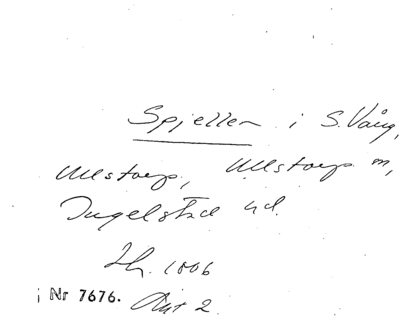 Spjellen i S. Vång,
Ullstorp, Ullstorps m,
Ingelstad hd.
Lh. 1006
i Nr 7676. Ant 2